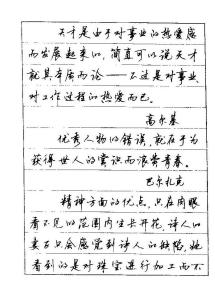 天才是由于对事业的热爱感
而发展起来的，简直可以说天才
就其本质而论——不过是对事业、
对工作过程的热爱而已。
高尔基
优秀人物的错误，就在于为
获得世人的赏识而浪费青春。
巴尔扎克
精神方面的优点，只在肉眼
看不见的范围内生长开花，诗人的
妻子只会感觉到诗人的缺陷，她
看到的是对珠宝进行加工而不